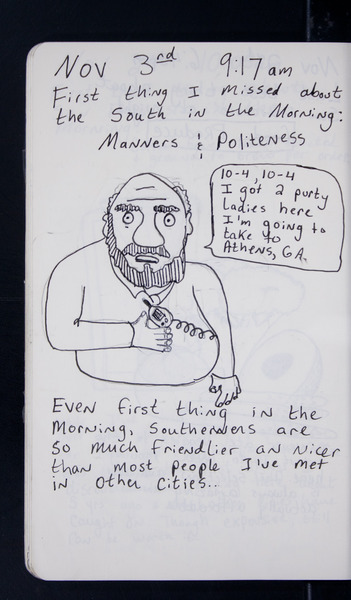 Nov 3rd 9:17 am
First thing I missed about
the South in the Morning:
Manners & Politeness
10-4, 10-4
I got 2 purty
Ladies here
I'm going to
take to
Athens, GA.
Even first thing in the
Morning, Southerners are
so much friendlier an nicer
than most people I've met
in other cities..